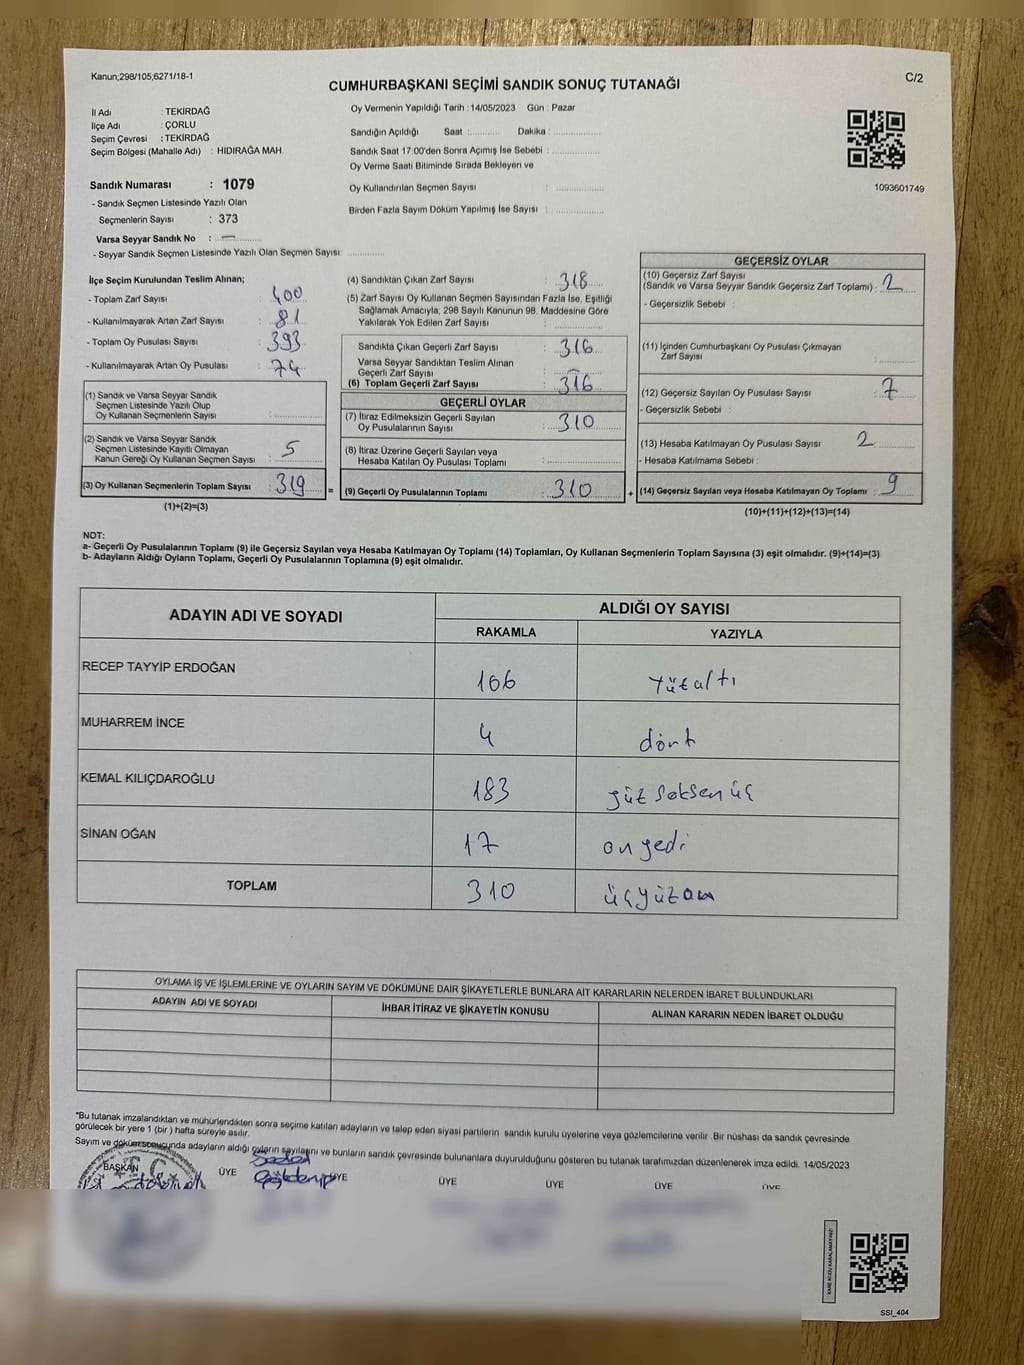 Kanun;298/105,6271/18-1
C/2
CUMHURBAŞKANI SEÇİMİ SANDIK SONUÇ TUTANAĞI
İl Adı : TEKİRDAĞ
İlçe Adı : ÇORLU
Seçim Çevresi : TEKİRDAĞ
Seçim Bölgesi (Mahalle Adı) : HIDIRAĞA MAH.
Oy Vermenin Yapıldığı Tarih : 14/05/2023 Gün : Pazar
Sandığın Açıldığı Saat : Dakika :
Sandık Saat 17:00'den Sonra Açımış İse Sebebi :
Oy Verme Saati Bitiminde Sırada Bekleyen ve
Oy Kullandırılan Seçmen Sayısı :
Birden Fazla Sayım Döküm Yapılmış İse Sayısı :
1093601749
Sandık Numarası : 1079
- Sandık Seçmen Listesinde Yazılı Olan
Seçmenlerin Sayısı : 373
Varsa Seyyar Sandık No : —
- Seyyar Sandık Seçmen Listesinde Yazılı Olan Seçmen Sayısı:
İlçe Seçim Kurulundan Teslim Alınan;
- Toplam Zarf Sayısı : 400
- Kullanılmayarak Artan Zarf Sayısı : 81
- Toplam Oy Pusulası Sayısı : 393
- Kullanılmayarak Artan Oy Pusulası : 74
(1) Sandık ve Varsa Seyyar Sandık
Seçmen Listesinde Yazılı Olup
Oy Kullanan Seçmenlerin Sayısı :
(2) Sandık ve Varsa Seyyar Sandık
Seçmen Listesinde Kayıtlı Olmayan
Kanun Gereği Oy Kullanan Seçmen Sayısı : 5
(3) Oy Kullanan Seçmenlerin Toplam Sayısı : 319
(1)+(2)=(3)
=
(4) Sandıktan Çıkan Zarf Sayısı : 318
(5) Zarf Sayısı Oy Kullanan Seçmen Sayısından Fazla İse, Eşitliği
Sağlamak Amacıyla; 298 Sayılı Kanunun 98. Maddesine Göre
Yakılarak Yok Edilen Zarf Sayısı :
Sandıkta Çıkan Geçerli Zarf Sayısı : 316
Varsa Seyyar Sandıktan Teslim Alınan
Geçerli Zarf Sayısı : —
(6) Toplam Geçerli Zarf Sayısı : 316
GEÇERLİ OYLAR
(7) İtiraz Edilmeksizin Geçerli Sayılan
Oy Pusulalarının Sayısı : 310
(8) İtiraz Üzerine Geçerli Sayılan veya
Hesaba Katılan Oy Pusulası Toplamı :
(9) Geçerli Oy Pusulalarının Toplamı : 310
+
GEÇERSİZ OYLAR
(10) Geçersiz Zarf Sayısı
(Sandık ve Varsa Seyyar Sandık Geçersiz Zarf Toplamı) : 2
- Geçersizlik Sebebi :
(11) İçinden Cumhurbaşkanı Oy Pusulası Çıkmayan
Zarf Sayısı :
(12) Geçersiz Sayılan Oy Pusulası Sayısı : 7
- Geçersizlik Sebebi :
(13) Hesaba Katılmayan Oy Pusulası Sayısı : 2
- Hesaba Katılmama Sebebi :
(14) Geçersiz Sayılan veya Hesaba Katılmayan Oy Toplamı : 9
(10)+(11)+(12)+(13)=(14)
NOT:
a- Geçerli Oy Pusulalarının Toplamı (9) ile Geçersiz Sayılan veya Hesaba Katılmayan Oy Toplamı (14) Toplamları, Oy Kullanan Seçmenlerin Toplam Sayısına (3) eşit olmalıdır. (9)+(14)=(3)
b- Adayların Aldığı Oyların Toplamı, Geçerli Oy Pusulalarının Toplamına (9) eşit olmalıdır.
ADAYIN ADI VE SOYADI
ALDIĞI OY SAYISI
RAKAMLA YAZIYLA
RECEP TAYYİP ERDOĞAN 106 Yüzaltı
MUHARREM İNCE 4 dört
KEMAL KILIÇDAROĞLU 183 yüz seksen üç
SİNAN OĞAN 17 on yedi
TOPLAM 310 üçyüzon
OYLAMA İŞ VE İŞLEMLERİNE VE OYLARIN SAYIM VE DÖKÜMÜNE DAİR ŞİKAYETLERLE BUNLARA AİT KARARLARIN NELERDEN İBARET BULUNDUKLARI
ADAYIN ADI VE SOYADI İHBAR İTİRAZ VE ŞİKAYETİN KONUSU ALINAN KARARIN NEDEN İBARET OLDUĞU
*Bu tutanak imzalandıktan ve mühürlendikten sonra seçime katılan adayların ve talep eden siyasi partilerin sandık kurulu üyelerine veya gözlemcilerine verilir. Bir nüshası da sandık çevresinde
görülecek bir yere 1 (bir ) hafta süreyle asılır.
Sayım ve döküm sonucunda adayların aldığı oyların sayılarını ve bunların sandık çevresinde bulunanlara duyurulduğunu gösteren bu tutanak tarafımızdan düzenlenerek imza edildi. 14/05/2023
BAŞKAN ÜYE ÜYE ÜYE ÜYE ÜYE ÜYE
KARE KODU KARALAMAYINIZ!
SSI_404